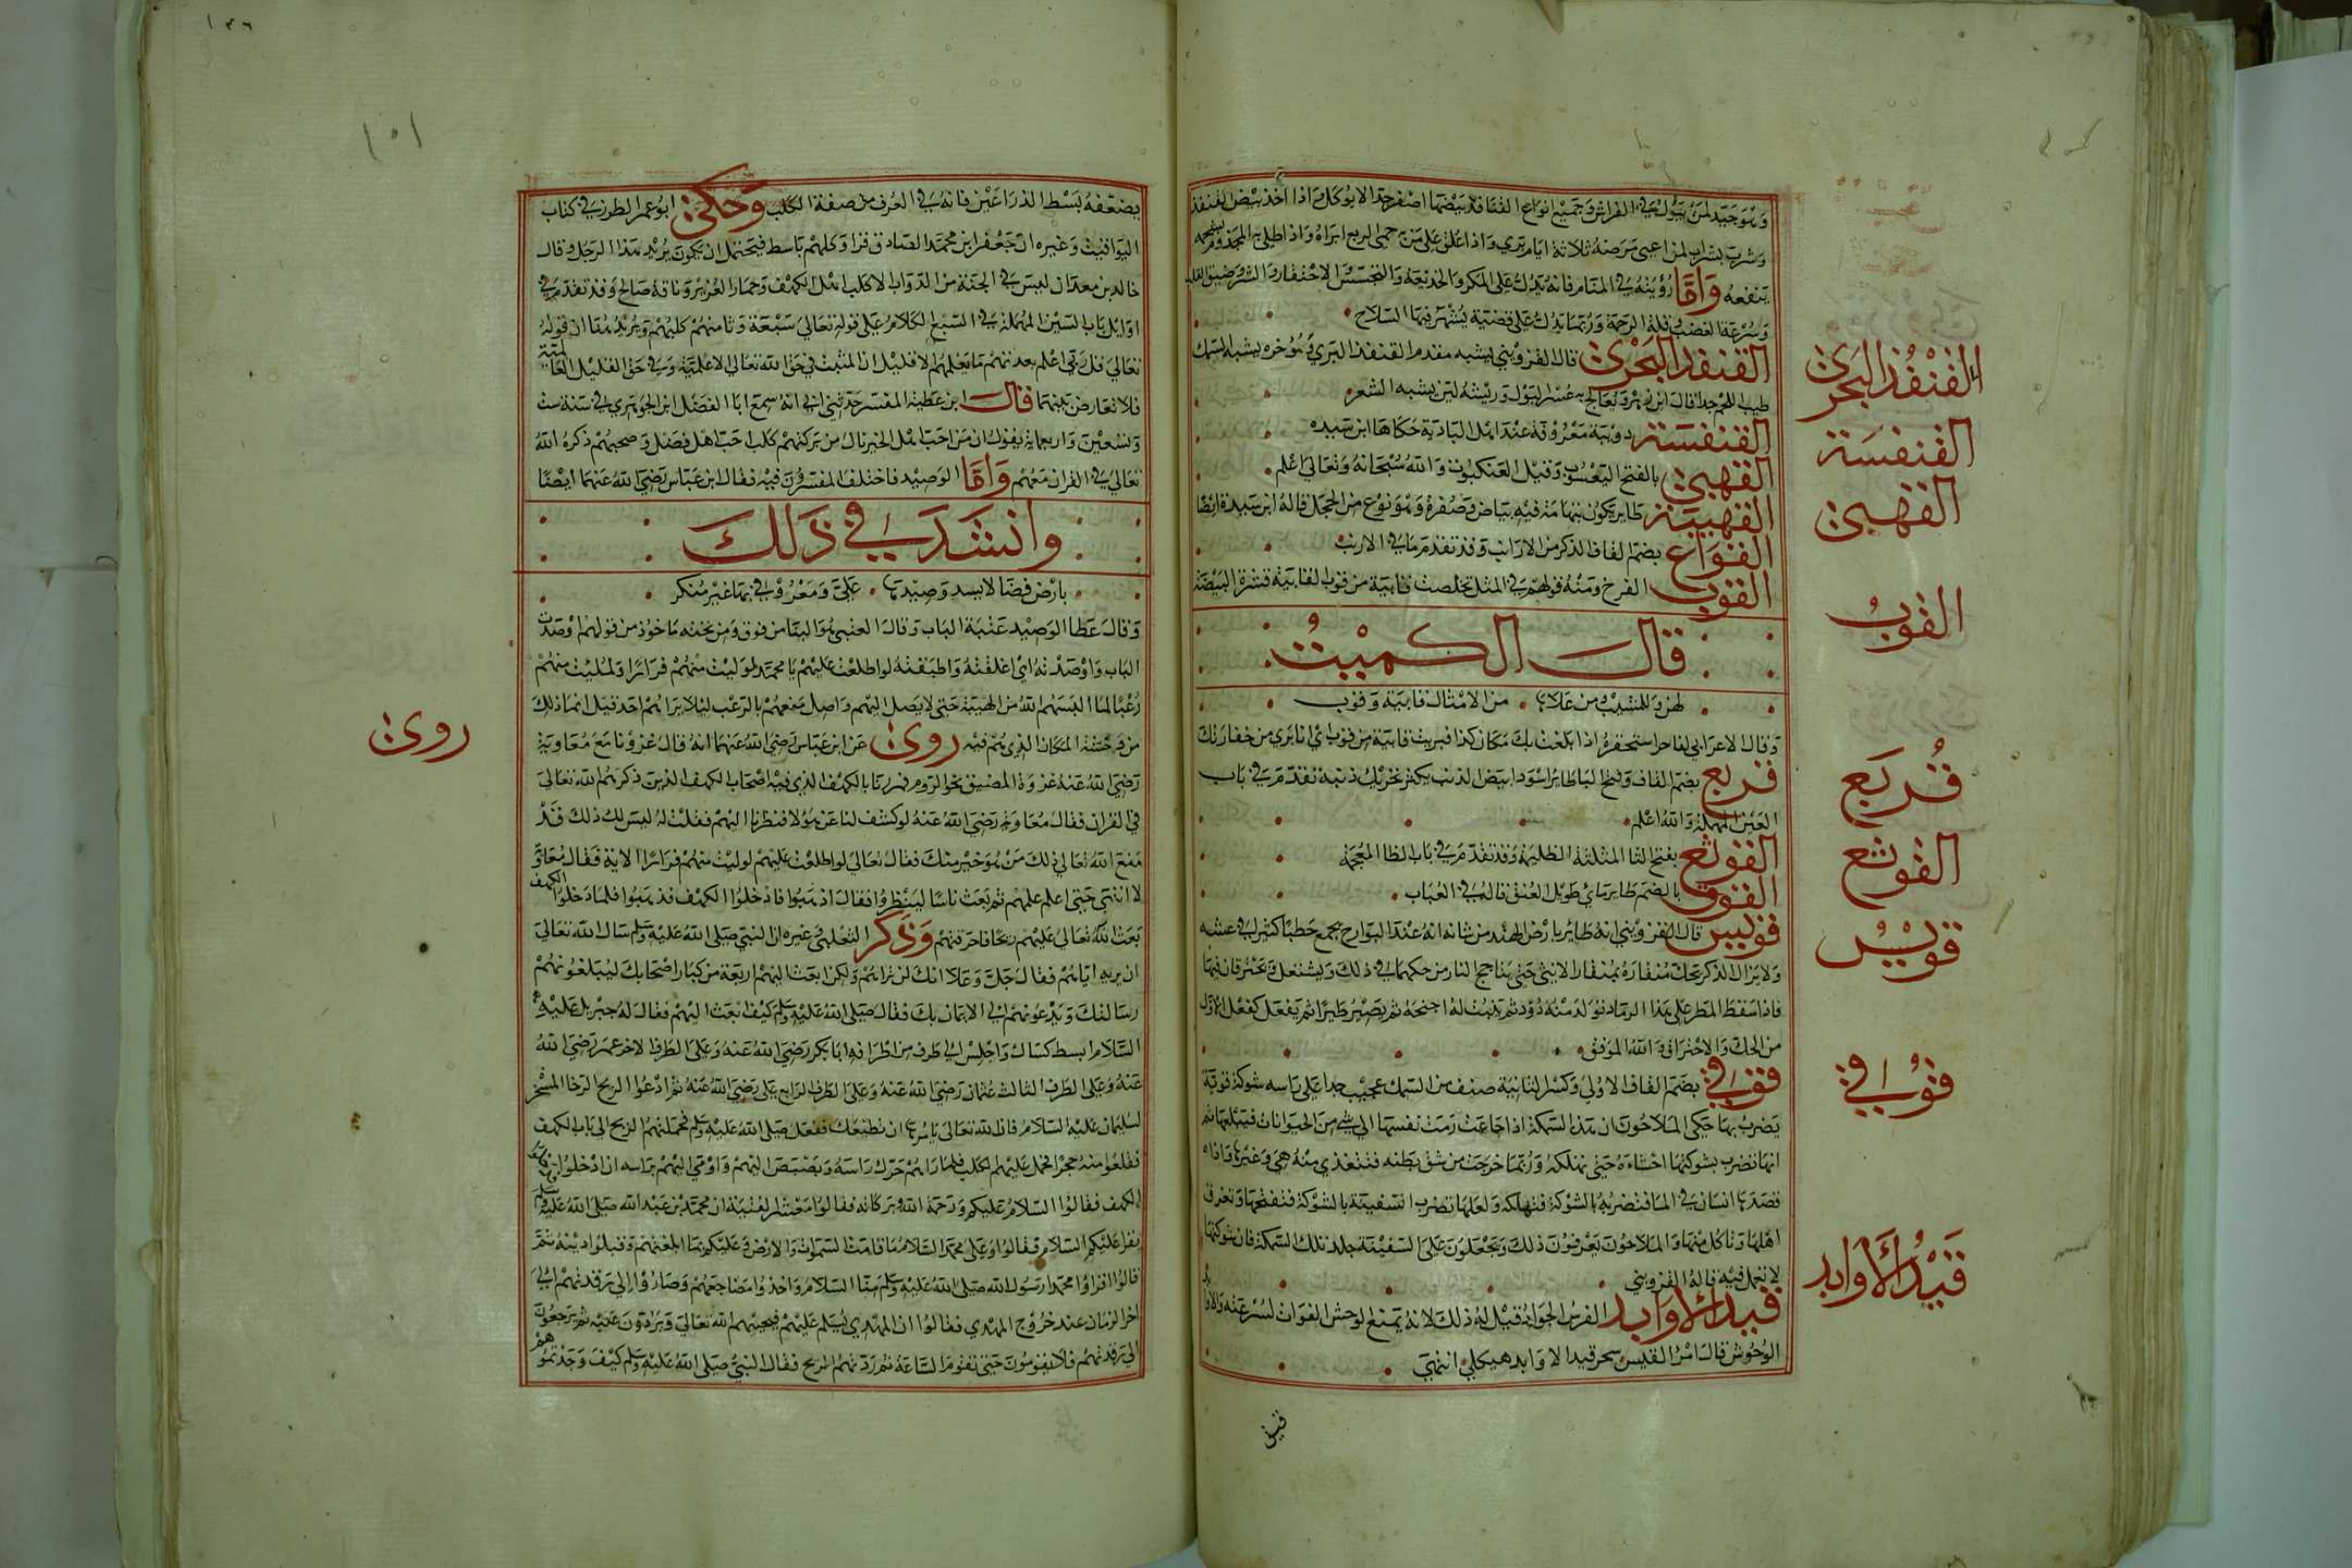 وهو جيد لمن يبول في الفراش وجميع انواع القنافذ بيضها اصفر جدا لا يوكل واذا اخذ بيض القنفذ
ينفعه واما رؤيته في المنام فانه تدل على المكر والخديعة والتجسس والاحتقار والشر وضيق القلب
وسرعة الغضب وقلة الرحمة وربما تدل على فتنة يشهر فيها السلاح
القنفذ البحرى قال القزويني يشبه مقدم القنفذ البري وموخره يشبه السمك
طيب اللحم جدا قال ابن زهر ويعالج به عسر البول وريشه لين يشبه الشعر
القنفشة دويبة معروفة عند اهل البادية حكاها ابن سيده
القهبى بالفتح اليعسوب وقيل العنكبوت والله سبحانه وتعالى اعلم
القهيبة طاير يكون بتهامة فيه بياض وصفرة وهو نوع من الحجل قاله ابن سيدة ايضا
القواع بضم القاف الذكر من الارانب وقد تقدم ما في الارنب
القوب الفرخ ومنه قولهم في المثل تخلصت قايبة من قوب القايبة قشرة البيضة
قال الكميت
لهن وللمشيب ومن علاه من الامثال قايبة وقوب
قربع بضم القاف وفتح الباطاير اسود ابيض الذنب يكثر تحريك ذنبه تقدم في باب
العين المهملة والله اعلم
القوثع بفتح الثا المثلثة الظليم وقد تقدم في باب الظا المعجمة
القوق بالضم طاير ماي طويل العنق قاله في العباب
قوليس قال القزويني انه طاير بارض الهند من شانه انه عند التوارج يجمع حطبا كثيرا في عشه
ولا يزال الذكر يحك منقاره بمنقار الانثى حتى يتاجج النار من حكهما في ذلك ويشتعل فيحترقان فيها
فاذا سقط المطر على هذا الرماد تولد منه دود ثم تنبت له اجنحة ثم يصير طيرا ثم يفعل كفعل الاول
من الحك والاحتراق والله الموفق
قوقي بضم القاف الاولى وكسر الثانية صنف من السمك عجيب جدا على راسه شوكة قوية
يضرب بها حكى الملاحون ان هذه السمكة اذا جاعت رمت نفسها الى شي من الحيوانات فيبتلعها ثم
انها تضرب بشوكتها احشاه حتى تهلكه وربما خرجت من شق بطنه فتتغذى منه هي وغيرها واذا
قصدها انسان في الما فتضربه بالشوكة فتهلكه ولعلها تضرب السفينة بالشوكة فتنقبها وتغرق
اهلها وتاكل منها والملاحون يعرفون ذلك ويجعلون على السفينة جلد تلك السمكة فان شوكتها
لا تعمل فيه قاله القزويني
قيد الاوابد الفرس الجواد قيل له ذلك لانه يمنع الوحش الفوات لسرعته والاوابد
الوحوش قال امرؤ القيس بمنجرد قيد الاوابد هيكل انتهى
القنفذ البحرى
القنفشة
القهبى
القوب
قربع
القوثع
قويس
قوقي
قيد الاوابد
بصنعفه بسط الذراعين فانه في العرف من صفة الكلب وحكى ابو عمر المطرزي في كتاب
اليواقيت وغيره ان جعفر ابن محمد الصادق قرا وكلبهم باسط فيحتمل ان يكون يريد هذا الرجل وقال
خالد بن معدان ليس في الجنة من الدواب الا كلب اهل الكهف وحمار العزير وناقة صالح وقد تقدم في
اوايل باب السين المهملة في السبع الكلام على قوله تعالى سبعة وثامنهم كلبهم
تعالى قل ربي اعلم بعدتهم ما يعلمهم الا قليل ان المثبت في حق الله تعالى الاعلمية وفي حق القليل العالمية
فلا تعارض بينهما قال ابن عطية المفسر حدثني ابي انه سمع ابا الفضل ابن الجوهري في سنة ست
وتسعين واربعماية يقول ان من احب اهل الخير نال من بركتهم كلب احب اهل فضل وصحبهم ذكره الله
تعالى في القران معهم واما الوصيد فاختلف المفسرون فيه فقال ابن عباس رضي الله عنهما ايضا
وانشد في ذلك
بارض فضا لا يسد وصيدها على ومعروفي بها غير منكر
وقال عطا الوصيد عتبة الباب وقال العتبي هو البنا من فوق ومن تحته ماخوذ من قولهم اوصدت
الباب واوصدته اي اغلقته واطبقته لو اطلعت عليهم يا محمد لوليت منهم فرارا ولملئت منهم
رعبا لما البسهم الله من الهيبة حتى لا يصل اليهم واصل منعهم بالرعب ليلا يراهم احد قيل انما ذلك
من وحشة المكان الذي هم فيه روى عن ابن عباس رضي الله عنهما انه قال غزونا مع معاوية
رضي الله عنه غزوة المضيق نحو الروم فمررنا بالكهف الذي فيه اصحاب الكهف الذين ذكرهم الله تعالى
في القران فقال معاوية رضي الله عنه لو كشف لنا عن هولا فنظرنا اليهم فقلت له ليس لك ذلك قد
منع الله تعالى ذلك من هو خير منك فقال تعالى لو اطلعت عليهم لوليت منهم فرارا الاية فقال معاوية
لا انتهي حتى اعلم علمهم ثم بعث ناسا لينظروا فقال اذهبوا فادخلوا الكهف فذهبوا فلما دخلوا الكهف
بعث الله تعالى عليهم ريحا فاحرقتهم وذكر الثعلبي وغيره ان النبي صلى الله عليه وسلم سال الله تعالى
ان يريه اياهم فقال جل وعلا انك لن تراهم ولكن ابعث اليهم اربعة من كبار اصحابك ليبلغونهم
رسالتك ويدعونهم الى الايمان بك فقال صلى الله عليه وسلم كيف ابعث اليهم فقال له جبريل عليه
السلام ابسط كساك واجلس على طرف من اطرافه ابا بكر رضي الله عنه وعلى الطرف الاخر عمر رضي الله
عنه وعلى الطرف الثالث عثمان رضي الله عنه وعلى الطرف الرابع على رضي الله عنه ثم ادعوا الريح الرخا المسخر
لسليمان عليه السلام فان الله تعالى يامرها ان تطيعك ففعل صلى الله عليه وسلم فحملتهم الريح الى باب الكهف
فقلعوا منه حجرا فحمل عليهم الكلب فلما راهم حرك راسه وبصبص اليهم واومى اليهم براسه ان ادخلوا
الكهف فقالوا السلام عليكم ورحمة الله وبركاته فقالوا معشر الفتية ان محمد بن عبد الله صلى الله عليه وسلم
يقرا عليكم السلام فقالوا وعلى محمد السلام ما قامت السموات والارض وعليكم بما ابلغتم وقبلوا دينه ثم
قالوا اقراوا محمدا رسول الله صلى الله عليه وسلم منا السلام واخذوا مضاجعهم وصاروا الى رقدتهم الى
اخر الزمان عند خروج المهدي فقالوا ان المهدي يسلم عليهم فيحييهم الله تعالى ويردون عليه ثم يرجعون
الى رقدتهم فلا يقومون حتى تقوم الساعة ثم ردتهم الريح فقال النبي صلى الله عليه وسلم كيف وجدتموهم
روى
١٥١